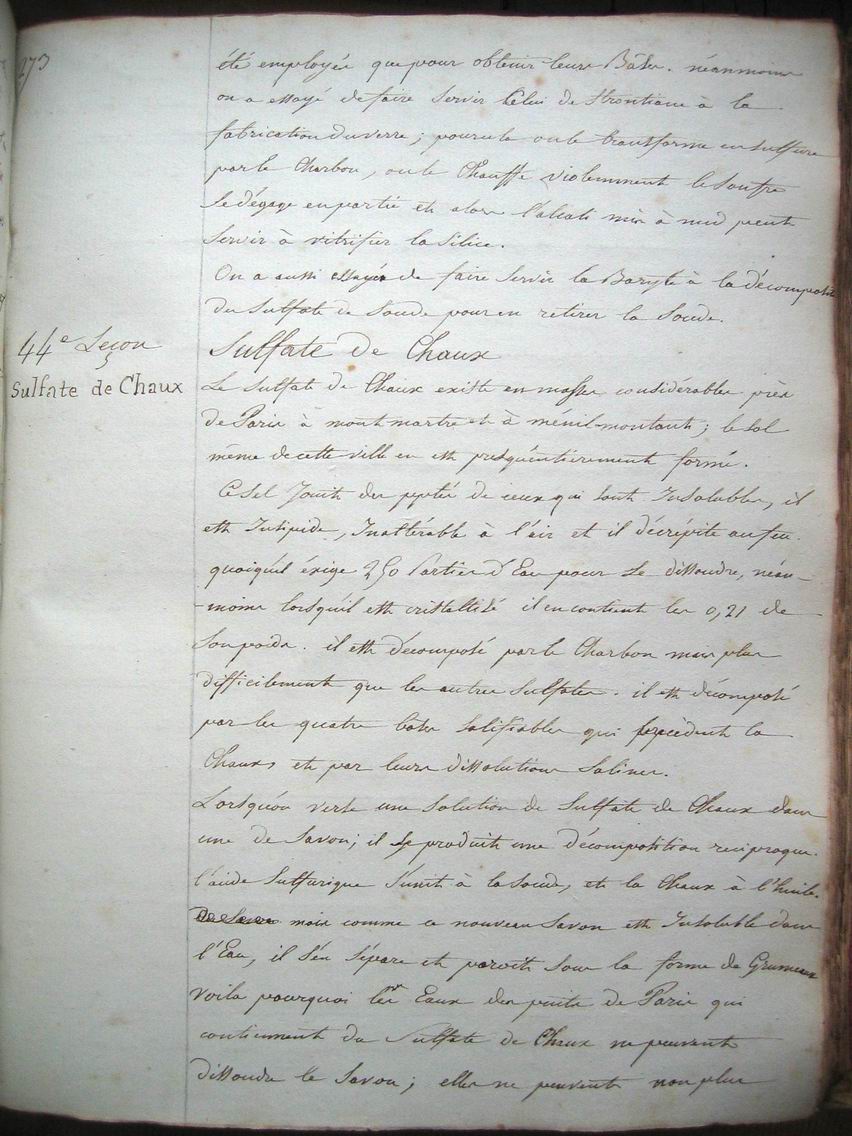 273
été employés que pour obtenir leurs Bâses. néanmoins
on a essayé de faire servir Celui de Strontiane à la
fabrication du verre; pour cela on le transforme en sulfure
par le Charbon, on le Chauffe violemment le Soufre
Se dégage en partie et alors l'alcali mis à nud peut
Servir à vitrifier la Silice.
On a aussi essayé de faire Servir la Baryte à la décomposit
du Sulfate de Soude pour en retirer la Soude.
44e Leçon
Sulfate de Chaux
Sulfate de Chaux
Le Sulfate de Chaux existe en masses considérables près
de Paris à montmartre et à ménil-montant; le Sol
même de cette ville en est presqu'entièrement formé.
Ce Sel Jouit des de ceux qui sont Insolubles, il
est Insipide, Inaltérable à l'air et il décrépite au feu.
quoiqu'il éxige 250 Parties d'Eau pour se dissoudre, néan-
-moins lorsqu'il est cristallisé il en contient les 0,21 de
Son poids. il est décomposé par le Charbon mais plus
difficilement que les autres Sulfates. il est décomposé
par les quatre bases Salifiables qui précèdent la
Chaux, et par leurs dissolutions Salines.
Lorsqu'on verse une Solution de Sulfate de Chaux dans
une de Savon; il se produit une décomposition réciproque.
l'acide Sulfurique S'unit à la Soude, et la Chaux à l'huile.
mais comme ce nouveau Savon est Insoluble dans
l'Eau, il S'en Sépare et paroit Sous la forme de Grumeaux
Voila pourquoi les Eaux des puits de Paris qui
contiennent du Sulfate de Chaux ne peuvent
dissoudre le Savon; elles ne peuvent non plus